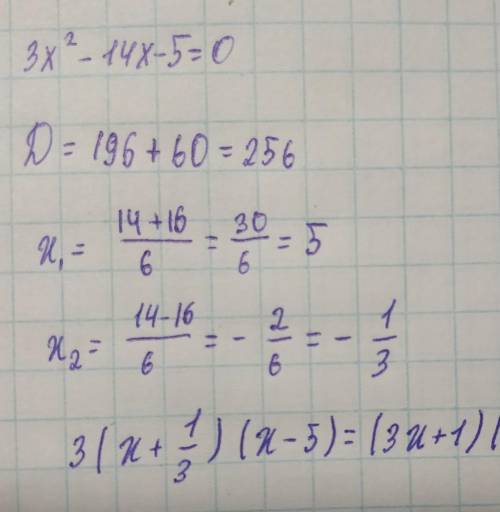 3x² - 14x - 5 = 0
D = 196 + 60 = 256
x₁ = (14 + 16)/6 = 30/6 = 5
x₂ = (14 - 16)/6 = - 2/6 = - 1/3
3(x + 1/3)(x - 5) = (3x + 1)(